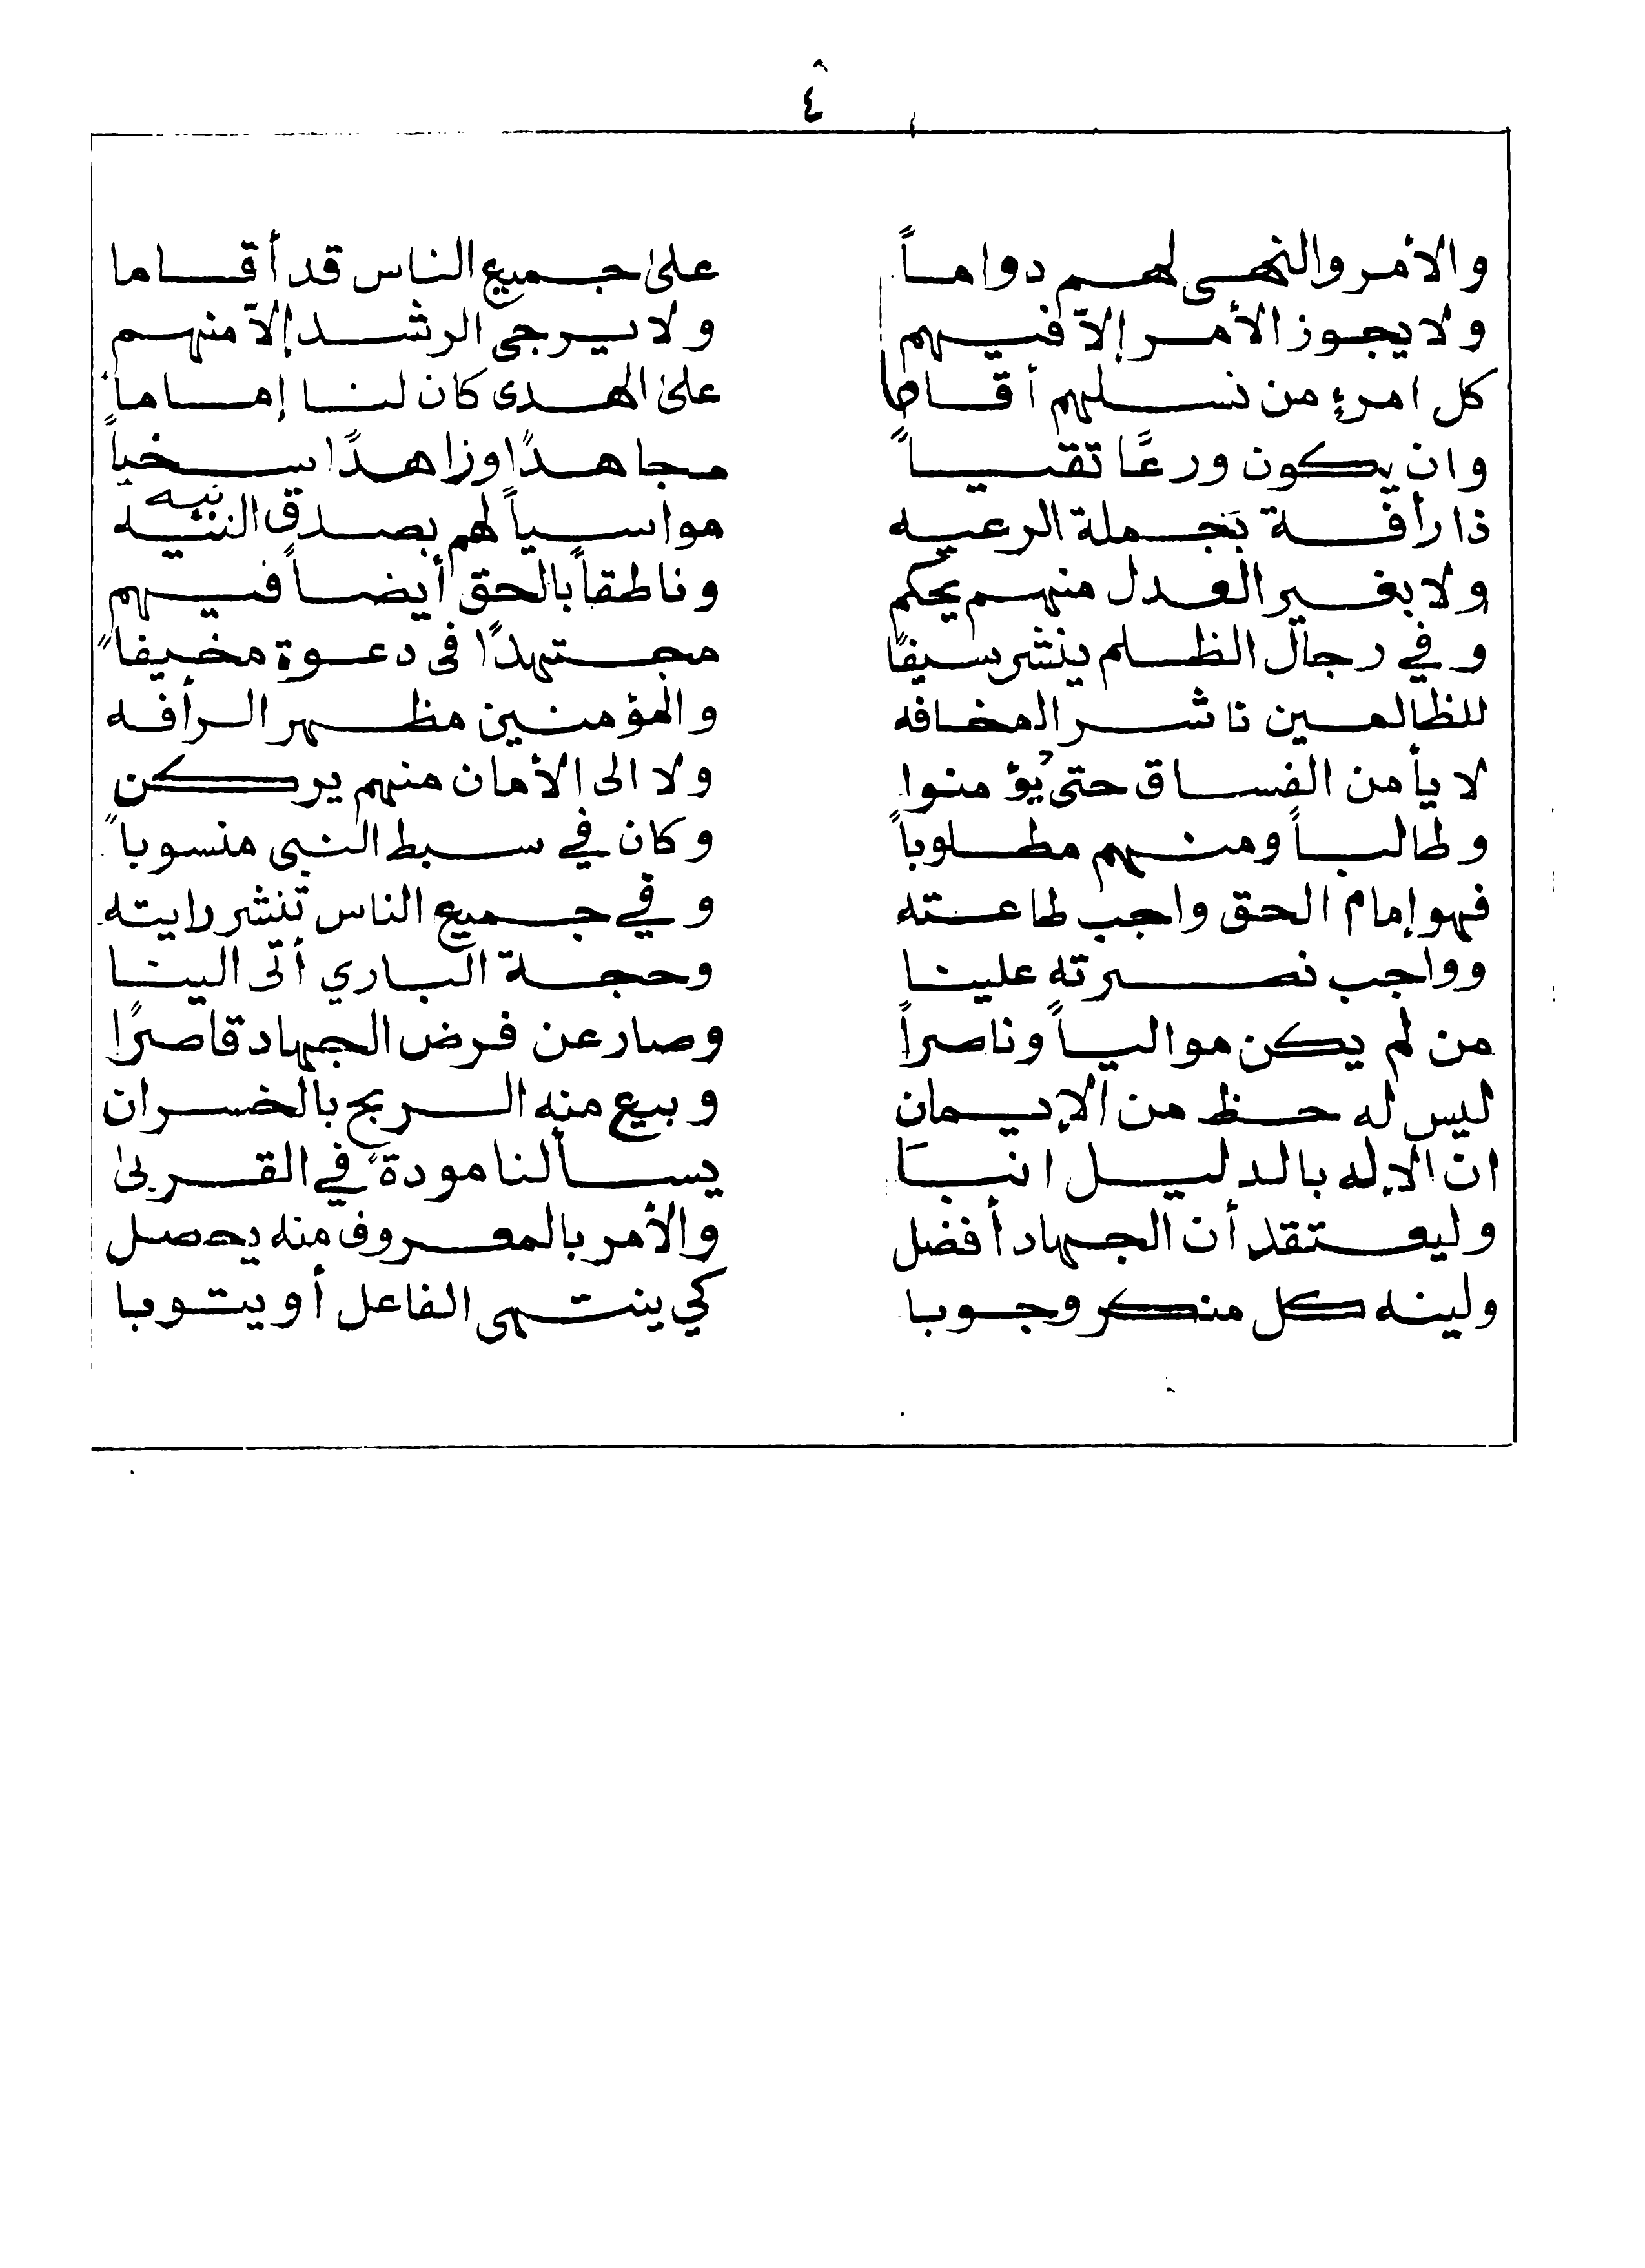 ٤
والأمر والنهى لهم دواماً على جميع الناس قد أقاما
ولا يجوز الأمر إلاّ فيهم ولا يرجى الرشد إلاّ منهم
كل امرءٍ من نسلهم أقاما على الهدى كان لنا إماماً
وان يكون ورعًا تقياً مجاهدًا وزاهدًا سخياً
ذا رأفة بجملة الرعيه مواسياً لهم بصدق النيه
ولا بغير العدل منهم يحكم وناطقاً بالحق أيضاً فيهم
وفي رجال الظلم ينشر سيفًا مجتهدًا فى دعوة مخيفاً
للظالمين ناشر المخافه والمؤمنين مظهر الرأفه
لا يأمن الفساق حتى يُؤمنوا ولا الى الأمان منهم يركن
وطالباً ومنهم مطلوباً وكان في سبط النبى منسوباً
فهو إمام الحق واجب طاعته وفي جميع الناس تنشر رايته
وواجب نصرته علينا وحجة الباري أتى الينا
من لم يكن موالياً وناصراً وصار عن فرض الجهاد قاصرًا
ليس له حظ من الإيمان وبيع منه الربح بالخسران
ان الإله بالدليل انبَا يسألنا مودةً في القربىٰ
وليعتقد أن الجهاد أفضل والأمر بالمعروف منه يحصل
ولينه كل منكر وجوبا كي ينتهى الفاعل أو يتوبا